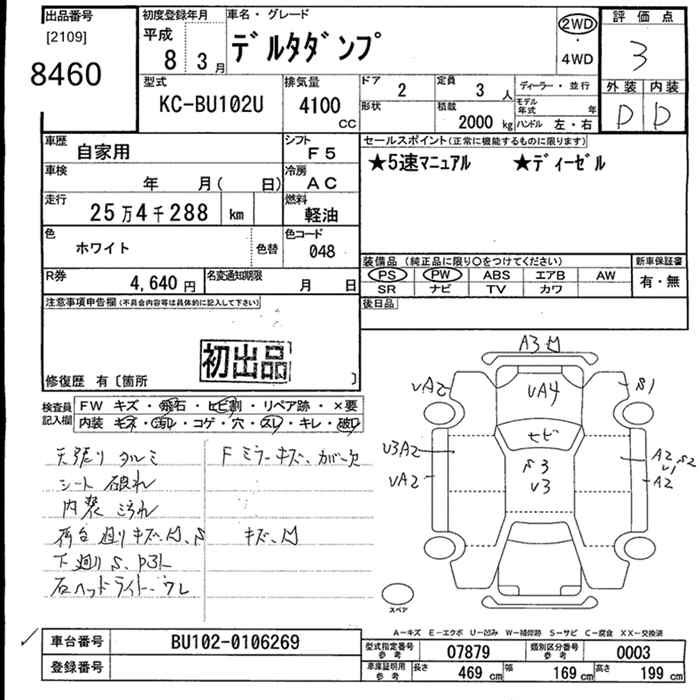 出品番号 初度登録年月 車名・グレード 2WD 評価点
[2109] 平成 デルタダンプ ・ 3
8460 8 3月 4WD
型式 排気量 ドア 2 定員 3人 ディーラー・並行 外装 内装
KC-BU102U 4100 CC 形状 積載 2000kg モデル年式 年 D D
ハンドル 左・右
車歴 自家用 シフト F5 セールスポイント(正常に機能するものに限ります)
車検 年 月( 日) 冷房 AC ★5速マニュアル ★ディーゼル
走行 25万4千288 km 燃料 軽油
色 ホワイト 色替 色コード 048
装備品(純正品に限り○をつけてください) 新車保証書
R券 4,640円 名変通知期限 月 日 PS PW ABS エアB AW 有・無
SR ナビ TV カワ
注意事項申告欄(不具合内容等は具体的に記入して下さい) 後日品
初出品
修復歴 有〔箇所 〕
検査員記入欄 FW キズ・飛石・ヒビ割・リペア跡・×要
内装 キズ・汚れ・コゲ・穴・スレ・キレ・破れ
天張り タルミ Fミラーキズ、カバー欠
シート 破れ
内装 汚れ
荷台廻りキズ、凹、S キズ、凹
下廻りS、
右ヘッドライト、ワレ
A3 凹
UA2 UA4 S1
ヒビ
U3A2 S3 A2 S2
UA2 U3 U1
A2
スペア
A-キズ E-エクボ U-凹み W-補修跡 S-サビ C-腐食 XX-交換済
車台番号 BU102-0106269 型式指定番号 参考 07879 類別区分番号 参考 0003
登録番号 車庫証明用 参考 長さ 469cm 幅 169cm 高さ 199cm